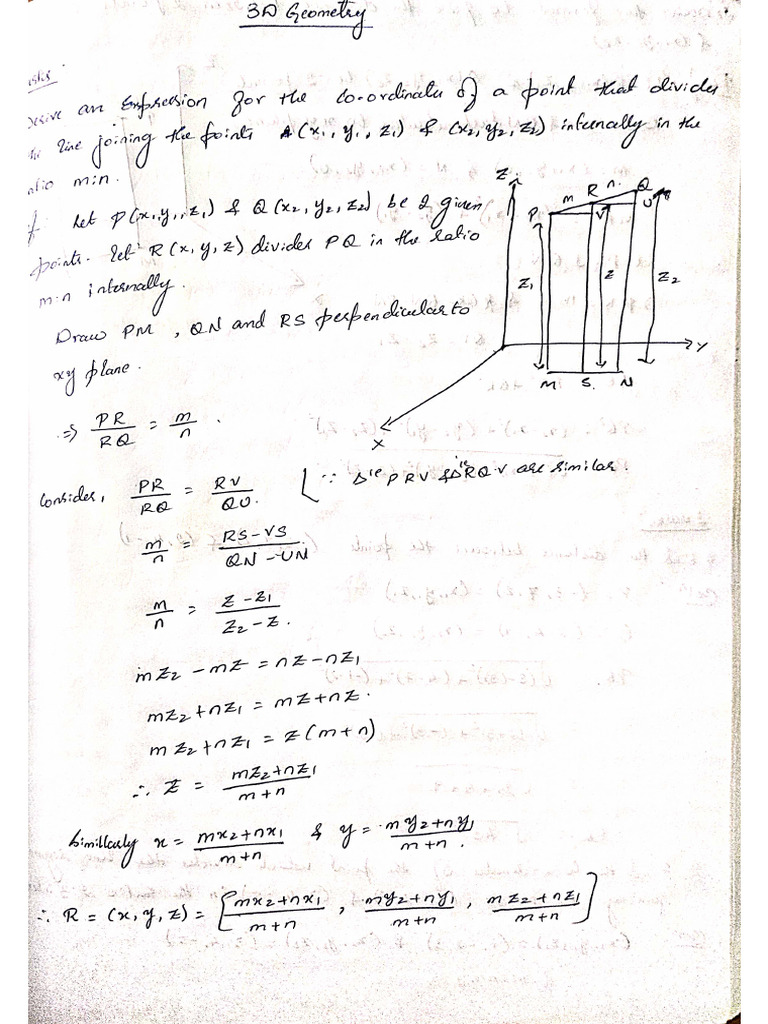 3D Geometry
Derive an Expression for the Co-ordinates of a point that divides
the line joining the points A(x₁, y₁, z₁) & (x₂, y₂, z₂) internally in the
ratio m:n.
Let P(x₁, y₁, z₁) & Q(x₂, y₂, z₂) be 2 given
points. Let R(x, y, z) divides PQ in the ratio
m:n internally.
Draw PM, QN and RS perpendicular to
xy plane.
Z
P m R n. Q
V U
Z₁ Z Z₂
Y
M S. N
X
⇒ PR/RQ = m/n .
Consider, PR/RQ = RV/QU. ( ∵ Δˡᵉ PRV & Δˡᵉ RQV are similar.
m/n = (RS-VS)/(QN-UN)
m/n = (Z-Z₁)/(Z₂-Z).
mZ₂ - mZ = nZ - nZ₁
mZ₂ + nZ₁ = mZ + nZ.
mZ₂ + nZ₁ = Z(m+n)
∴ Z = (mZ₂+nZ₁)/(m+n)
Simillarly x = (mx₂+nx₁)/(m+n) & y = (my₂+ny₁)/(m+n).
∴ R = (x, y, z) = [(mx₂+nx₁)/(m+n) , (my₂+ny₁)/(m+n) , (mz₂+nz₁)/(m+n)]